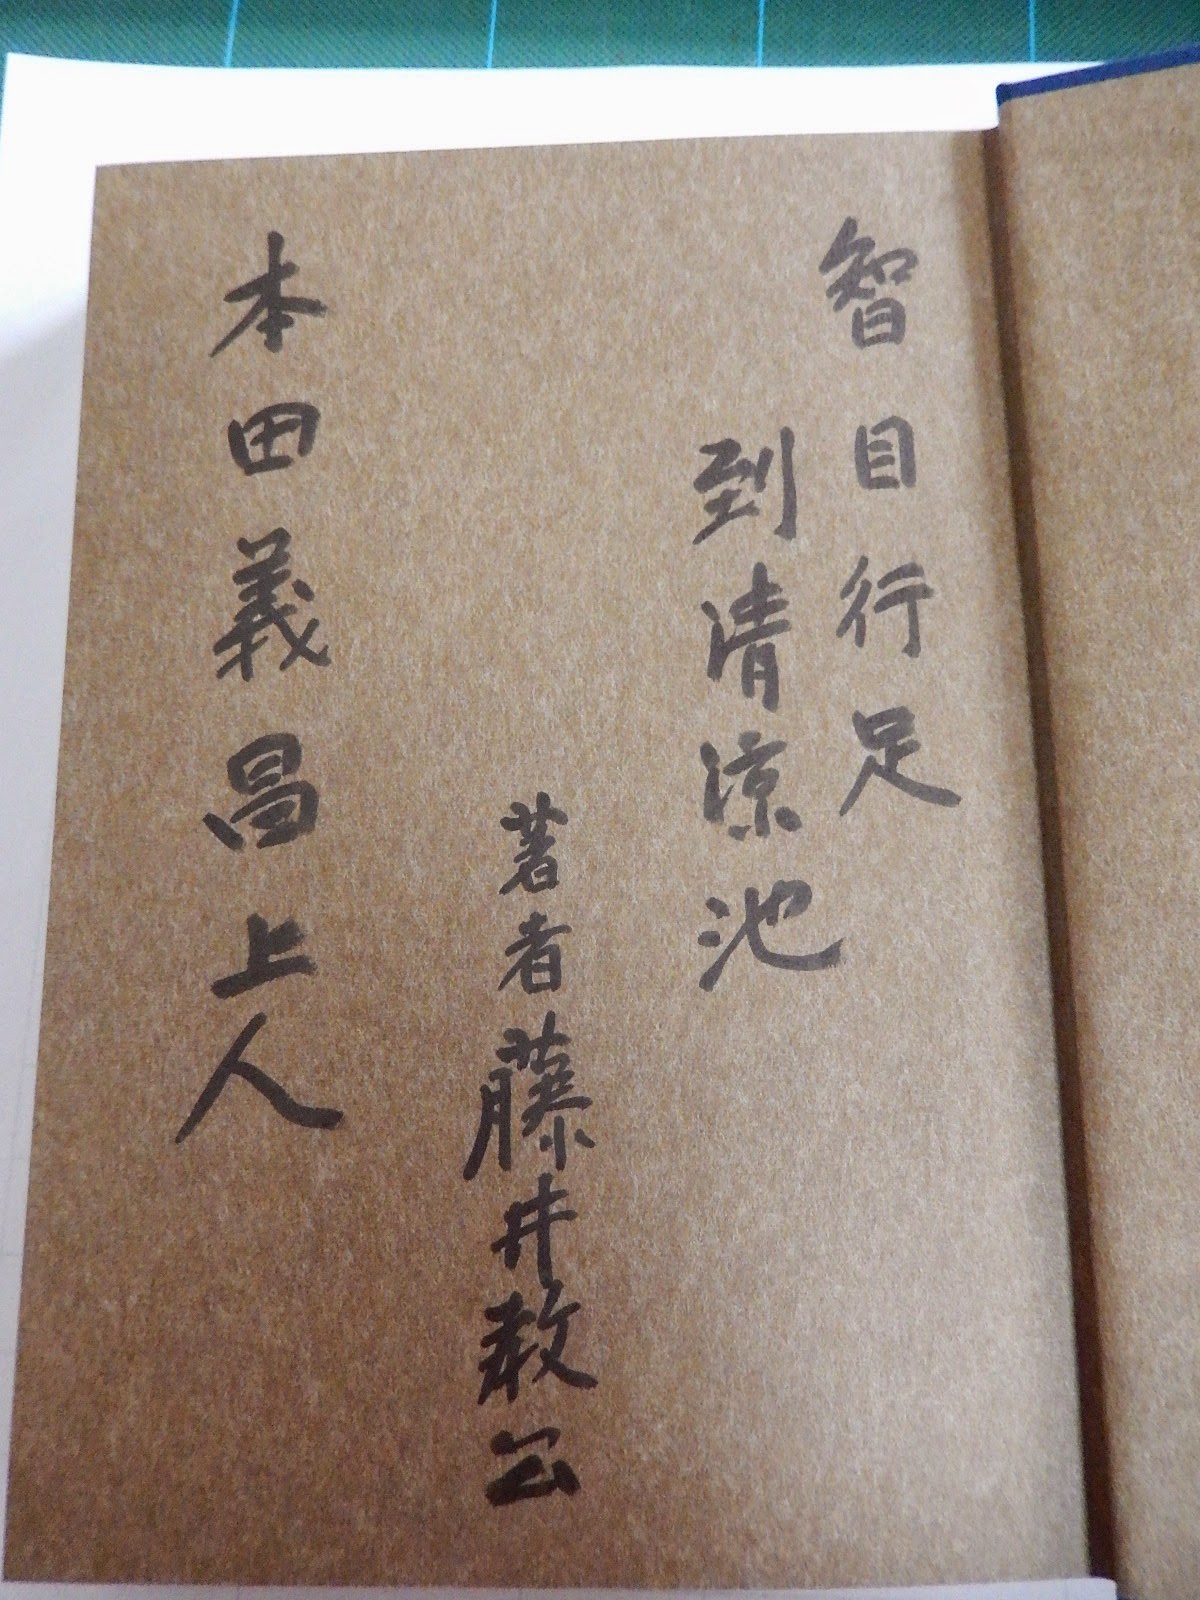 智目行足
到清涼池
著者藤井教公
本田義昌上人